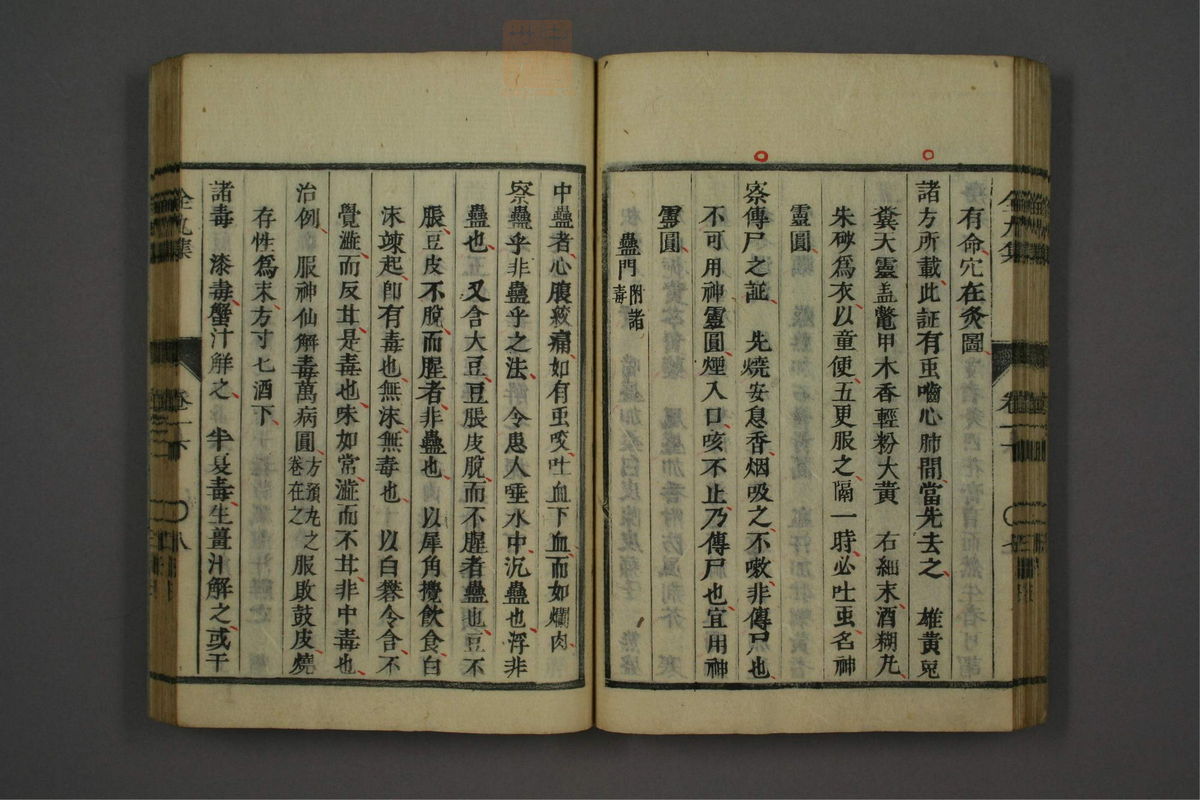 有命穴在灸圖
諸方所載此証有虫嚙心肺間當先去之　雄黃兎
糞天靈盖鼈甲木香輕粉大黃　右細末酒糊丸
朱砂爲衣以童便五更服之隔一時必吐虫名神
靈圓
察傳尸之証　先燒安息香烟吸之不嗽非傳尸也
不可用神靈圓煙入口咳不止乃傳尸也宜用神
靈圓
蠱門附諸毒
中蠱者心腹絞痛如有虫咬吐血下血而如爛肉
察蠱乎非蠱乎之法　令患人唾水中沉蠱也浮非
蠱也　又含大豆豆脹皮脫而不腥者蠱也豆不
脹豆皮不脫而腥者非蠱也　以犀角攪飲食白
沫竦起卽有毒也無沫無毒也　以白礬令含不
覺澁而反甘是毒也味如常澁而不甘非中毒也
治例　服神仙解毒萬病圓方預丸之卷在之　服敗鼓皮燒
存性爲末方寸匕酒下
諸毒　漆毒蟹汁解之　半夏毒生薑汁解之或干
全九集
卷
八